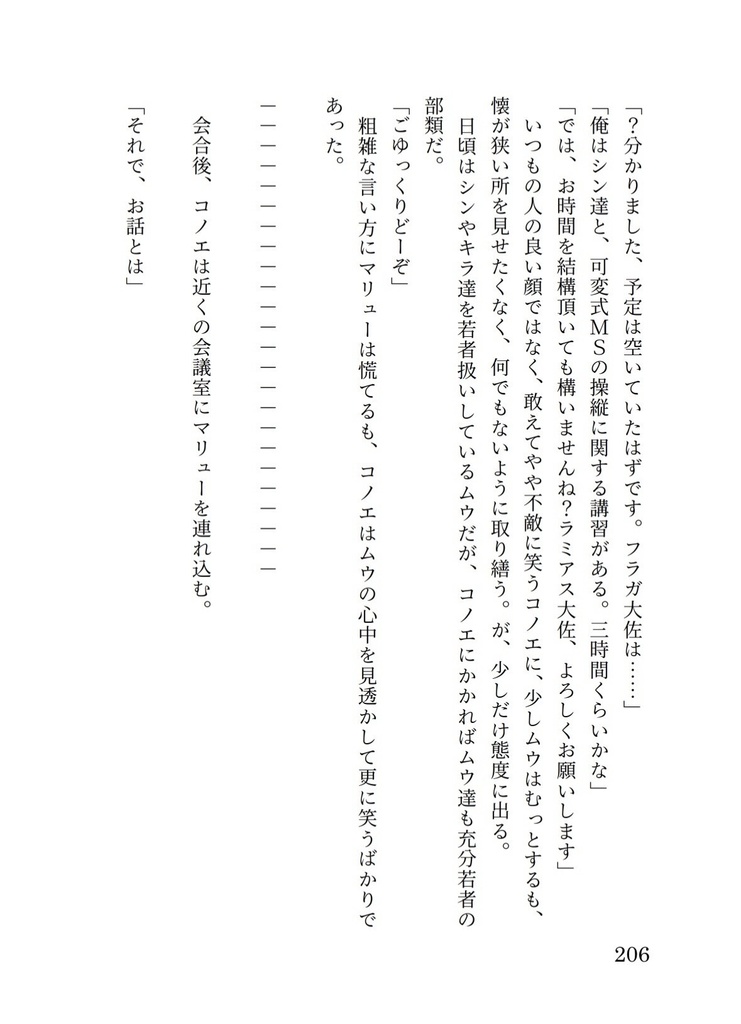 「？分かりました、予定は空いていたはずです。フラガ大佐は……」
「俺はシン達と、可変式ＭＳの操縦に関する講習がある。三時間くらいかな」
「では、お時間を結構頂いても構いませんね？ラミアス大佐、よろしくお願いします」
いつもの人の良い顔ではなく、敢えてやや不敵に笑うコノエに、少しムウはむっとするも、
懐が狭い所を見せたくなく、何でもないように取り繕う。が、少しだけ態度に出る。
日頃はシンやキラ達を若者扱いしているムウだが、コノエにかかればムウ達も充分若者の
部類だ。
「ごゆっくりどーぞ」
粗雑な言い方にマリューは慌てるも、コノエはムウの心中を見透かして更に笑うばかりで
あった。
｜｜｜｜｜｜｜｜｜｜｜｜｜｜｜｜｜｜｜｜｜｜｜｜
会合後、コノエは近くの会議室にマリューを連れ込む。
「それで、お話とは」
206